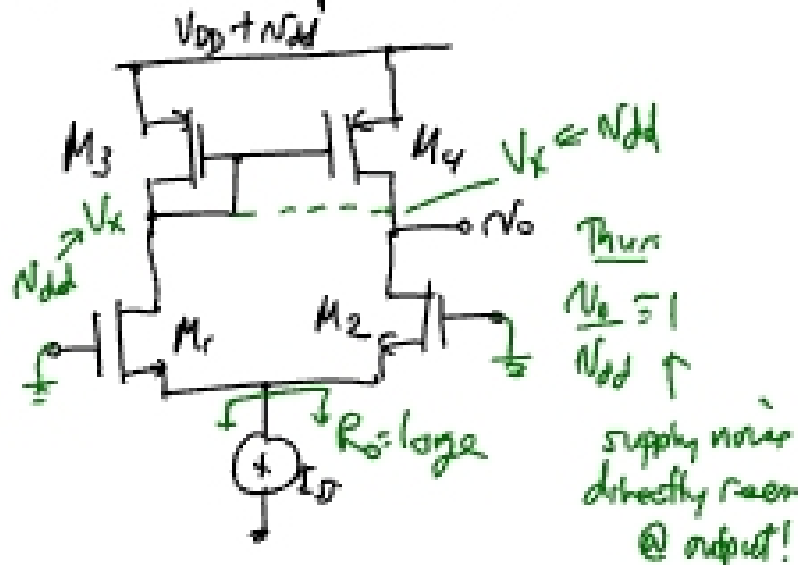 V_DD + v_dd
M3
M4
V_x ← v_dd
V_x
v_dd
v_o
Thus
v_o / v_dd = 1
M1
M2
R_o = large
supply noise
directly seen
@ output!